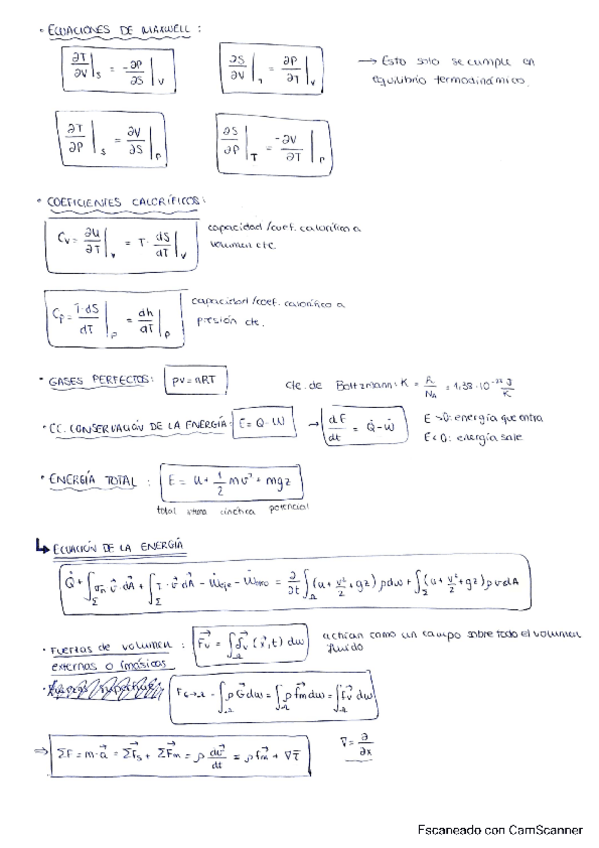 • ECUACIONES DE MAXWELL :
∂T/∂V|s = -∂P/∂S|v
∂S/∂V|T = ∂P/∂T|v
→ Esto solo se cumple en
equilibrio termodinámico.
∂T/∂P|s = ∂V/∂S|p
∂S/∂P|T = -∂V/∂T|p
• COEFICIENTES CALORÍFICOS:
Cv = ∂u/∂T|v = T · dS/dT|v
capacidad /coef. calorífico a
volumen cte.
Cp = T·dS/dT|p = dh/dT|p
capacidad /coef. calorífico a
presión cte.
• GASES PERFECTOS: pv = nRT
Cte. de Boltzmann: K = R/NA = 1.38·10⁻²³ J/K
• EC. CONSERVACIÓN DE LA ENERGÍA: E = Q - W → dE/dt = Q̇ - Ẇ
E > 0: energía que entra
E < 0: energía sale
• ENERGÍA TOTAL : E = u + 1/2 mv² + mgz
total interna cinética potencial
↳ ECUACIÓN DE LA ENERGÍA
Q̇ + ∫Σ σn v⃗ · dA⃗ + ∫Σ τ · v⃗ dA⃗ - Ẇeje - Ẇ = ∂/∂t ∫Ω (u + v²/2 + gz) ρdω + ∫Σ (u + v²/2 + gz) ρvdA
• Fuerzas de volumen : F⃗v = ∫Ω f⃗v (x⃗,t) dω
externas o (másicas
actúan como un campo sobre todo el volumen
fluido
FG→Ω = ∫Ω ρG⃗dω = ∫Ω ρf⃗m dω = ∫Ω f⃗v dω
⇒ ΣF = m·a⃗ = ΣF⃗s + ΣF⃗m = ρ dv⃗/dt = ρf⃗m + ∇τ̄
∇ = ∂/∂x
Escaneado con CamScanner